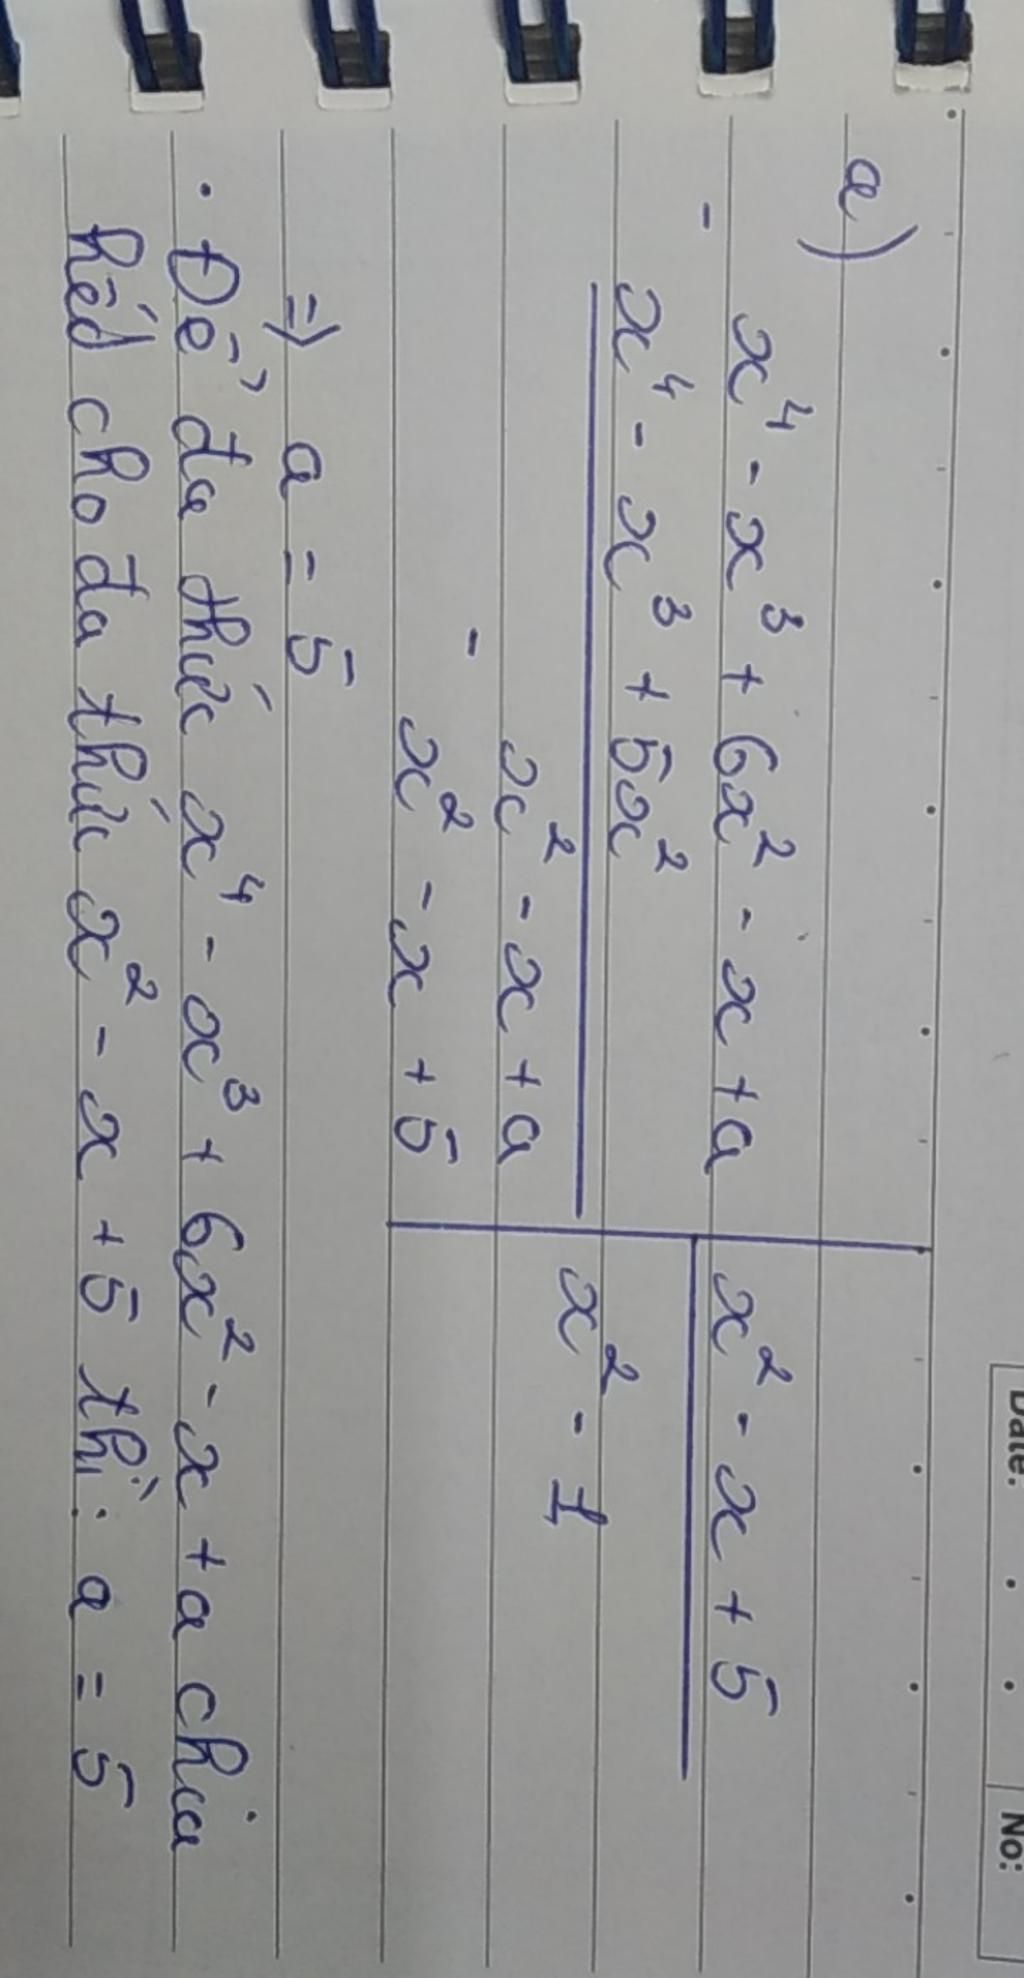 Date: No:
a)
x⁴ - x³ + 6x² - x + a x² - x + 5
-
x⁴ - x³ + 5x² x² - 1
x² - x + a
-
x² - x + 5
=> a = 5
· Để đa thức x⁴ - x³ + 6x² - x + a chia
hết cho đa thức x² - x + 5 thì: a = 5